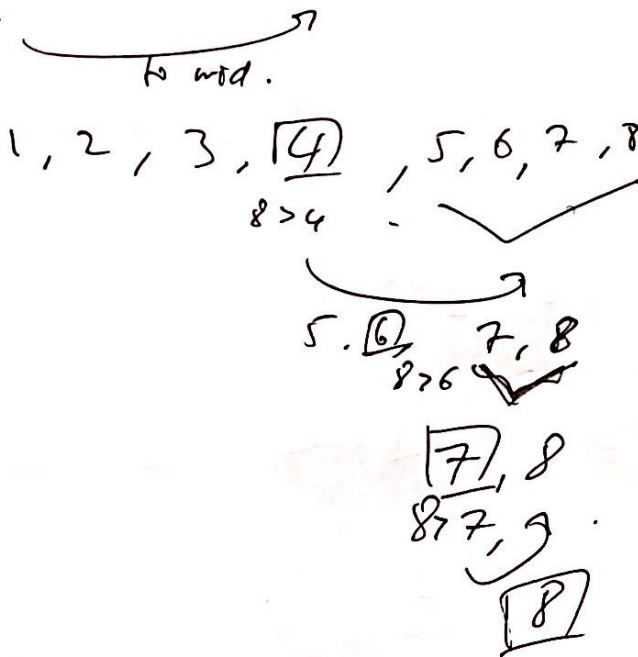 to mid.
1, 2, 3, 4, 5, 6, 7, 8
8 > 4
5. 6, 7, 8
8 > 6
7, 8
8 > 7,
8